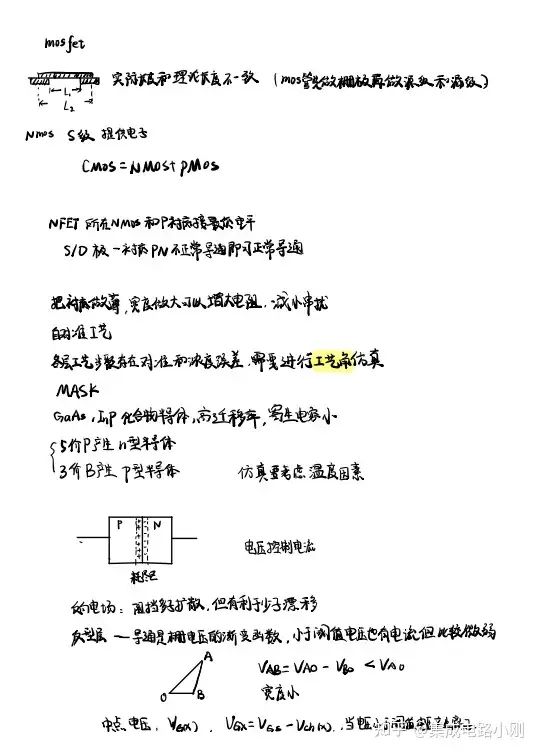 mosfet
实际长度和理论长度不一致 (mos管先做栅极再做源级和漏级)
L₁
L₂
Nmos S级 提供电子
CMOS = NMOS + PMOS
NFET 所在Nmos和P衬底接最低电平
S/D极一衬底PN不正常导通即可正常导通
把衬底做薄,宽度做大可以增大电阻,减小串扰
自对准工艺
各层工艺步骤存在对准和浓度误差,需要进行工艺角仿真
MASK
GaAs, InP 化合物半导体,高迁移率,寄生电容小
5价P产生 n型半导体
3价B产生 P型半导体 仿真要考虑 温度因素
P N
电压控制电流
耗尽区
电场: 阻挡多子扩散,但有利于少子漂移
反型层 一导通是栅电压的渐变函数,小于阈值电压也有电流但比较微弱
A
O B
VAB = VAO - VBO < VAO
宽度小
中点电压, VG(x), VGX = VGS - Vch(x), 当电压小于阈值电压
知乎 @集成电路小刚